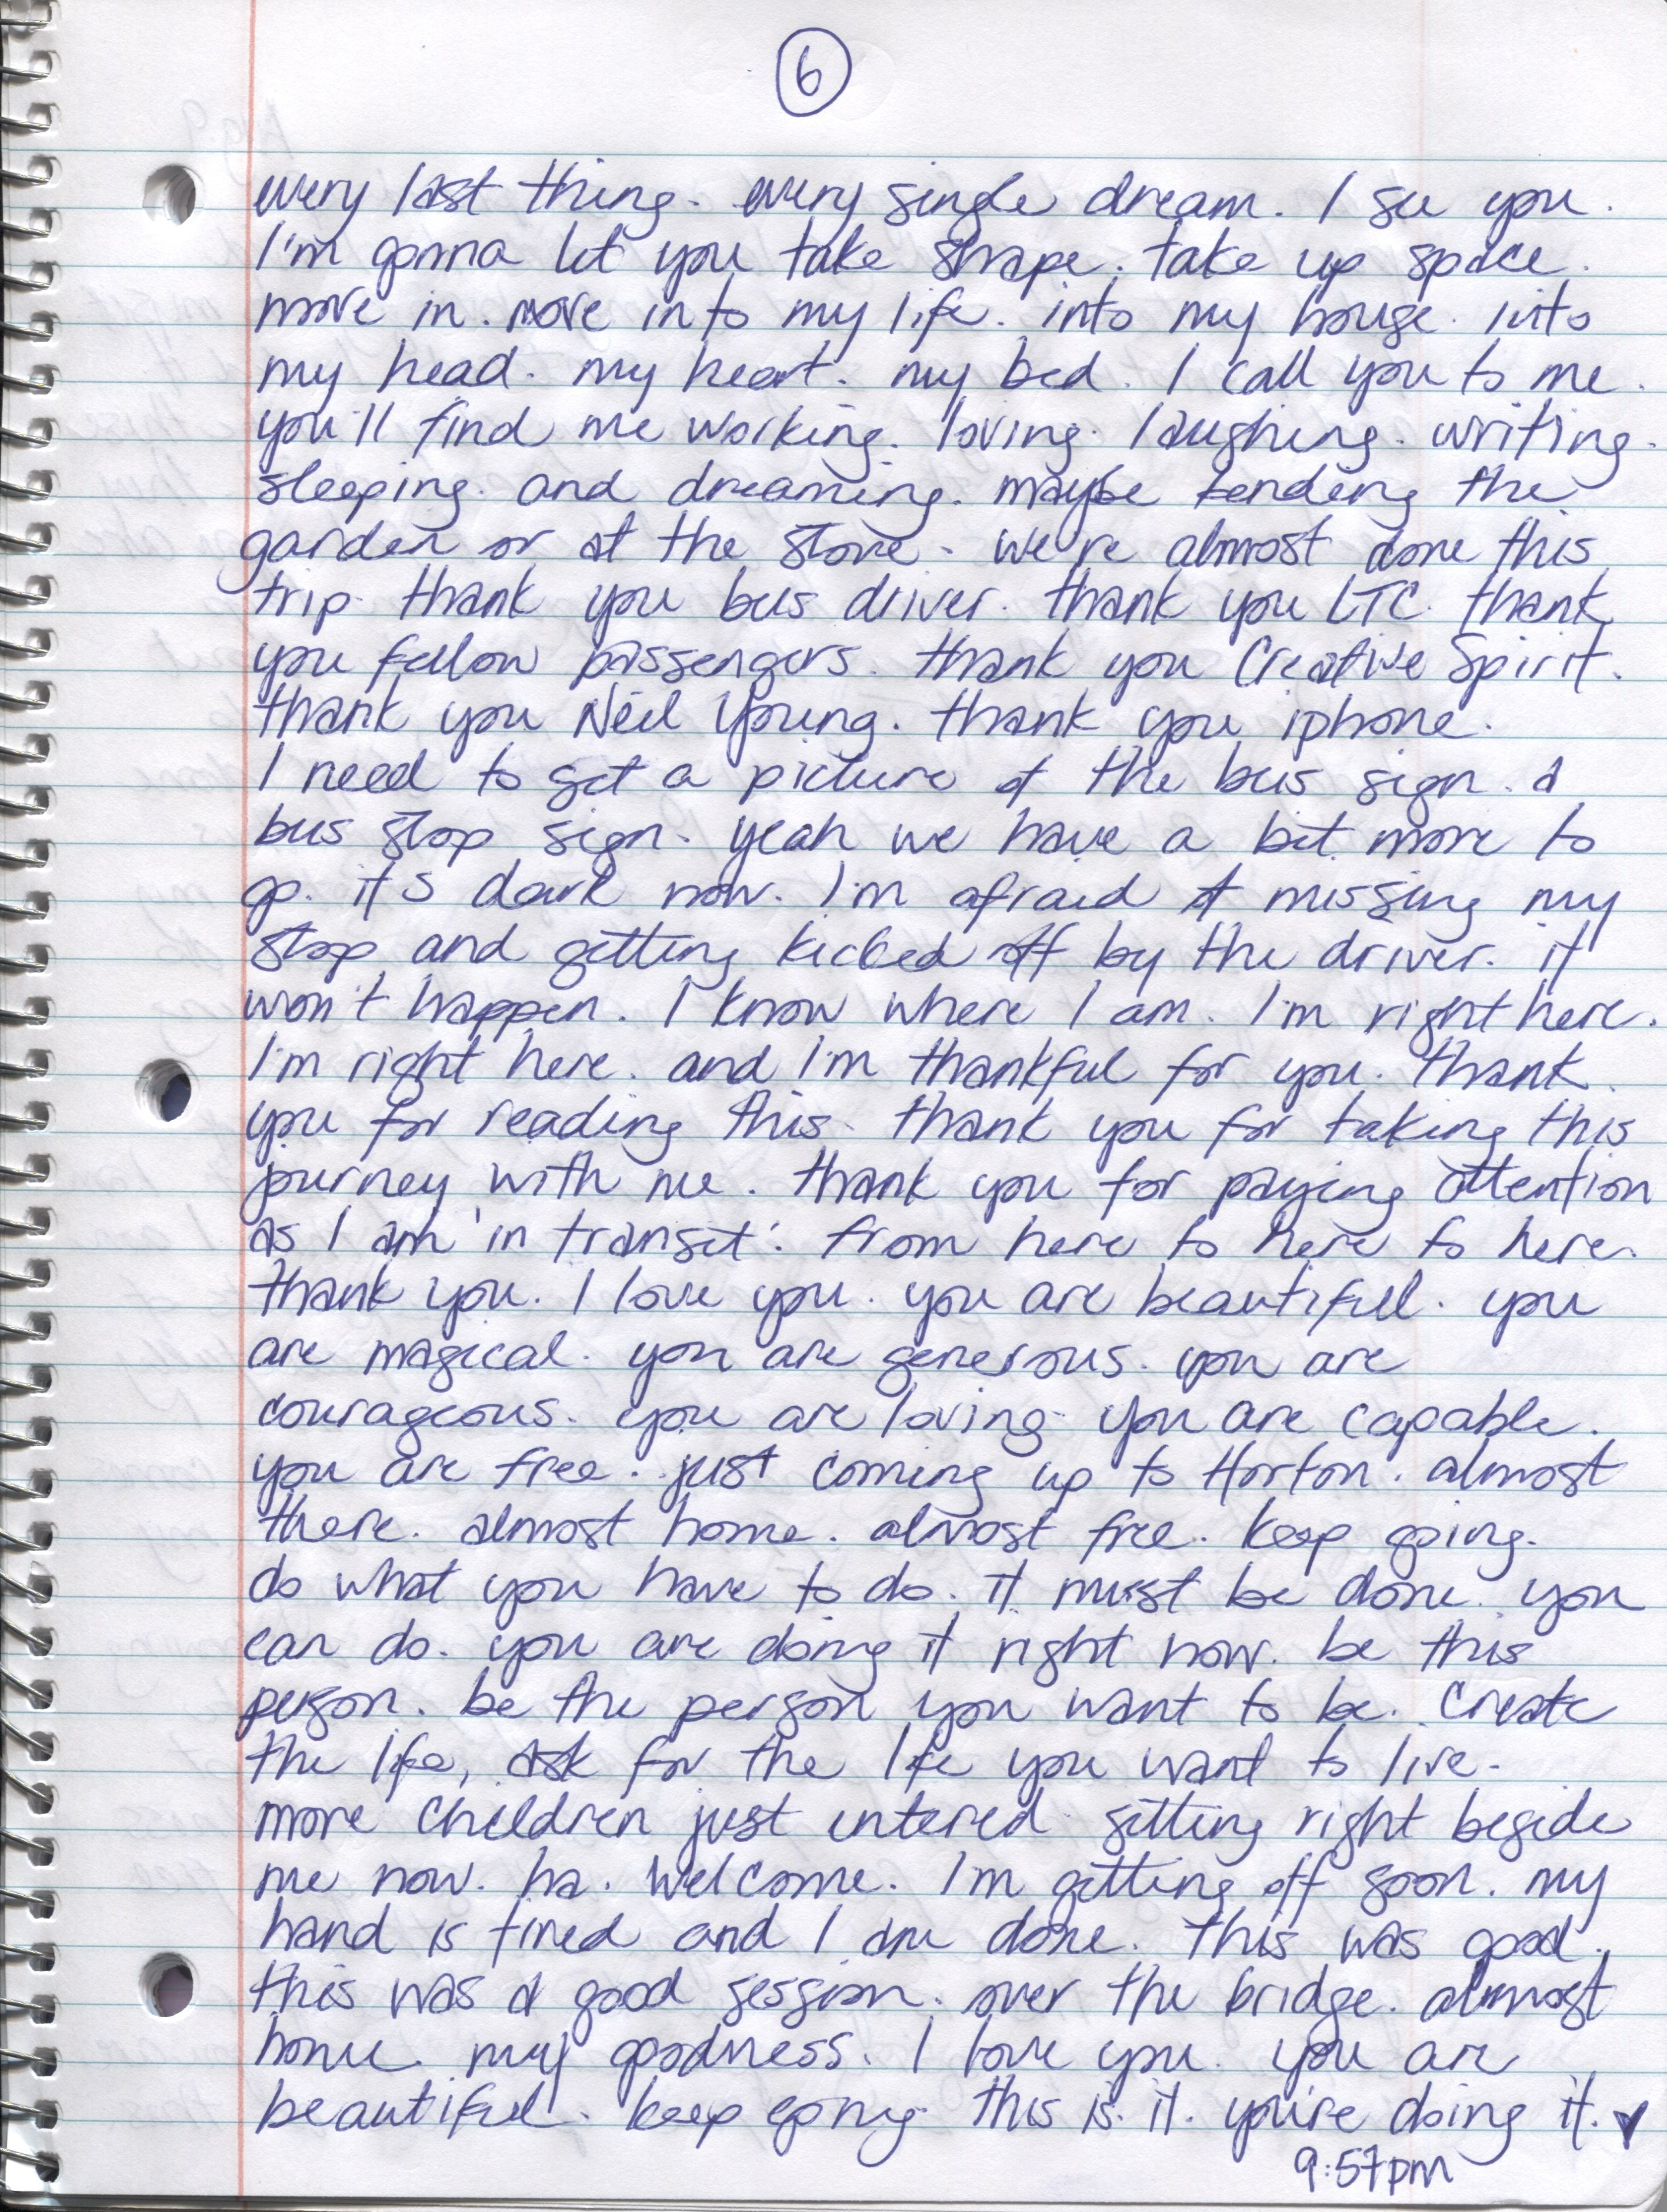 6
every last thing. every single dream. I see you.
I'm gonna let you take shape. take up space.
move in. move into my life. into my house. into
my head. my heart. my bed. I call you to me.
you'll find me working. loving. laughing. writing.
sleeping. and dreaming. maybe tending the
garden or at the stove. we're almost done this
trip. thank you bus driver. thank you LTC. thank
you fellow passengers. thank you Creative Spirit.
thank you Neil Young. thank you iphone.
I need to get a picture of the bus sign. a
bus stop sign. yeah we have a bit more to
go. it's dark now. I'm afraid of missing my
stop and getting kicked off by the driver. it
won't happen. I know where I am. I'm right here.
I'm right here. and I'm thankful for you. thank
you for reading this. thank you for taking this
journey with me. thank you for paying attention
as I am 'in transit'. from here to here to here.
thank you. I love you. you are beautiful. you
are magical. you are generous. you are
courageous. you are loving. you are capable.
you are free. just coming up to Horton. almost
there. almost home. almost free. keep going.
do what you have to do. it must be done. you
can do. you are doing it right now. be this
person. be the person you want to be. create
the life, ask for the life you want to live.
more children just entered. sitting right beside
me now. ha. welcome. I'm getting off soon. my
hand is tired and I am done. this was good.
this was a good session. over the bridge. almost
home. my goodness. I love you. you are
beautiful. keep going. this is it. you're doing it. ♥
9:57pm